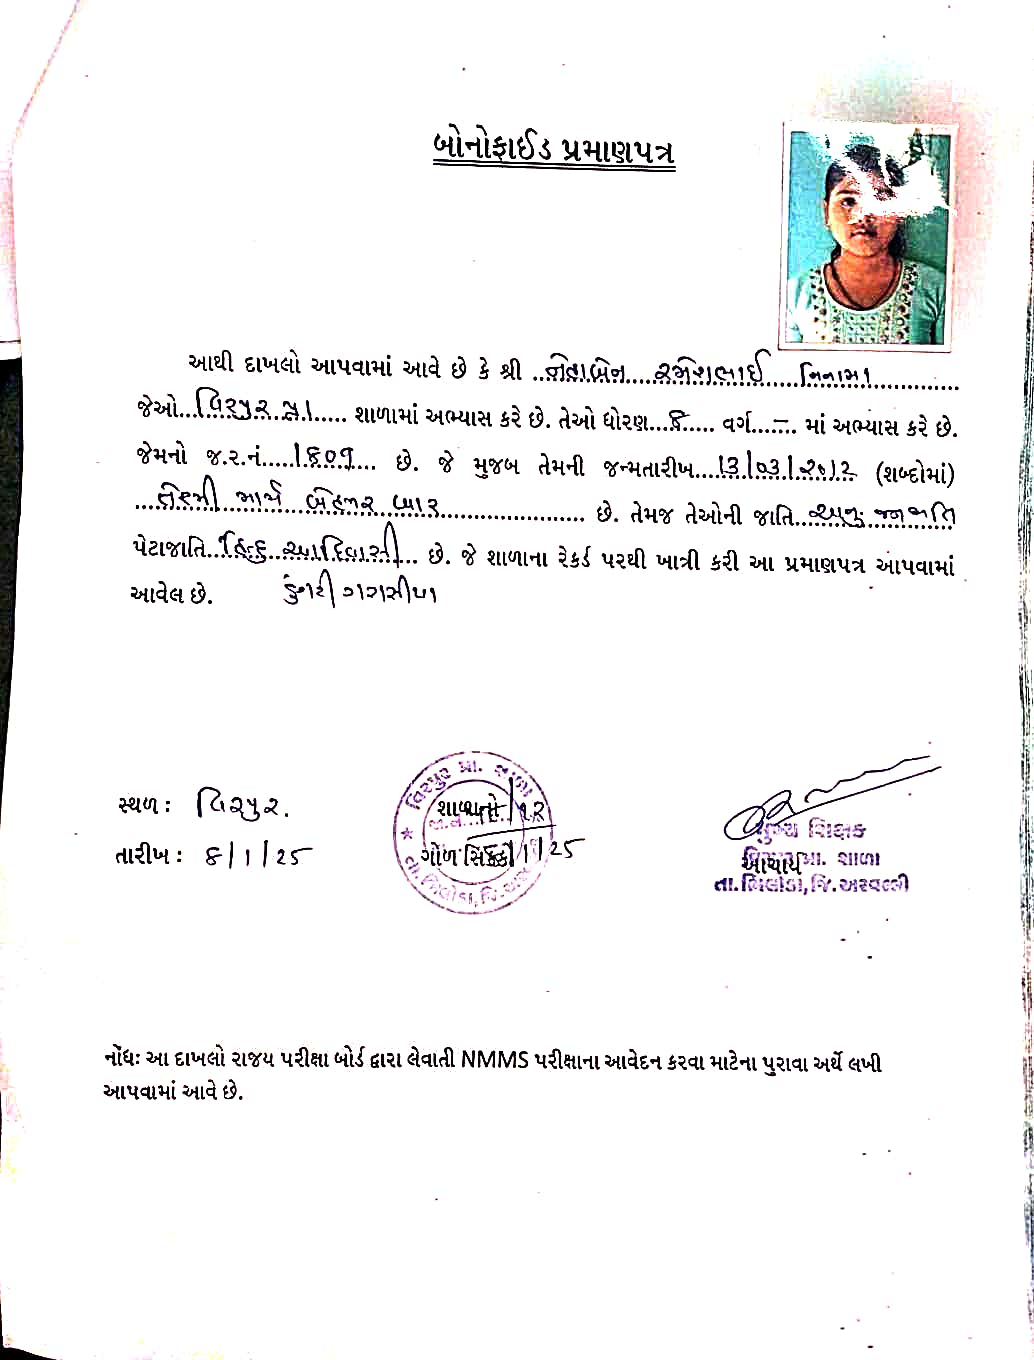 બોનોફાઈડ પ્રમાણપત્ર
આથી દાખલો આપવામાં આવે છે કે શ્રી ..નેહાબેન.....રમેશભાઈ.....નિનામા..............
જેઓ...વિરપુર પ્રા..... શાળામાં અભ્યાસ કરે છે. તેઓ ધોરણ...૮..... વર્ગ....–.... માં અભ્યાસ કરે છે.
જેમનો જ.ર.નં.....૧૬૦૧.... છે. જે મુજબ તેમની જન્મતારીખ....૧૩/૦૩/૨૦૧૨ (શબ્દોમાં)
...તેરમી માર્ચ બેહજાર બાર...................... છે. તેમજ તેઓની જાતિ...અનુ. જનજાતિ
પેટાજાતિ..હિન્દુ આદિવાસી.... છે. જે શાળાના રેકર્ડ પરથી ખાત્રી કરી આ પ્રમાણપત્ર આપવામાં
આવેલ છે. ડુંગરી ગરાસીયા
વિરપુર પ્રા. શાળા
તા.ભિલોડા,જિ.
સ્થળ : વિરપુર.
શાળાનો
તારીખ : ૮/૧/૨૫
ગોળ સિક્કો
મુખ્ય શિક્ષક
વિરપુર પ્રા. શાળા
આચાર્ય
તા.ભિલોડા,જિ.અરવલ્લી
નોંધ: આ દાખલો રાજ્ય પરીક્ષા બોર્ડ દ્વારા લેવાતી NMMS પરીક્ષાના આવેદન કરવા માટેના પુરાવા અર્થે લખી
આપવામાં આવે છે.